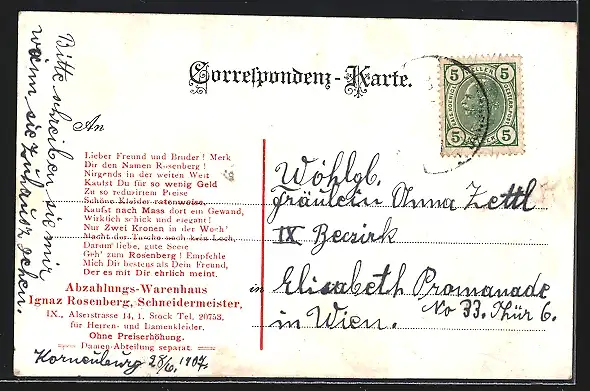 Bitte schreiben sie mir
wann sie zuhause gehen.
Correspondenz-Karte.
An
5 HELLER 5
5 5
Lieber Freund und Bruder! Merk
Dir den Namen Rosenberg!
Nirgends in der weiten Welt
Kaufst Du für so wenig Geld
Zu so reduzirtem Preise
Schöne Kleider ratenweise.
Kaufst nach Mass dort ein Gewand,
Wirklich schick und elegant!
Nur Zwei Kronen in der Woch'
Macht der Tasche noch kein Loch,
Darum liebe, gute Seele
Geh' zum Rosenberg! Empfehle
Mich Dir bestens als Dein Freund,
Der es mit Dir ehrlich meint.
Abzahlungs-Warenhaus
Ignaz Rosenberg, Schneidermeister,
IX., Alserstrasse 14, 1. Stock Tel. 20753,
für Herren- und Damenkleider.
Ohne Preiserhöhung.
Damen-Abteilung separat.
Korneuburg 28/6. 1907.
Wöhlgb.
Fräulein Anna Zettl
IX Beczirk
in Elisabeth Promanade
No 33. Thür 6.
in Wien.